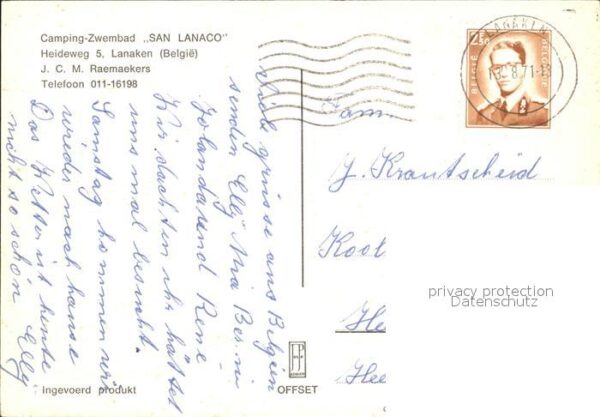 Camping-Zwembad „SAN LANACO"
Heideweg 5, Lanaken (België)
J. C. M. Raemaekers
Telefoon 011-16198
Viele grüsse aus Belgien
senden Elly Mia Bernie
Jolanda und René
Wir dachten ihr hättet
uns mal besucht.
Samstag kommen wir
wieder nach hause
Das Wetter ist heute
nicht so schön Elly
LANAKEN
13. 8.71
2,50
BELGIË
BELGIQUE
Fam.
J. Krautscheid
Koot
He
Hee
privacy protection
Datenschutz
Ingevoerd produkt
OFFSET